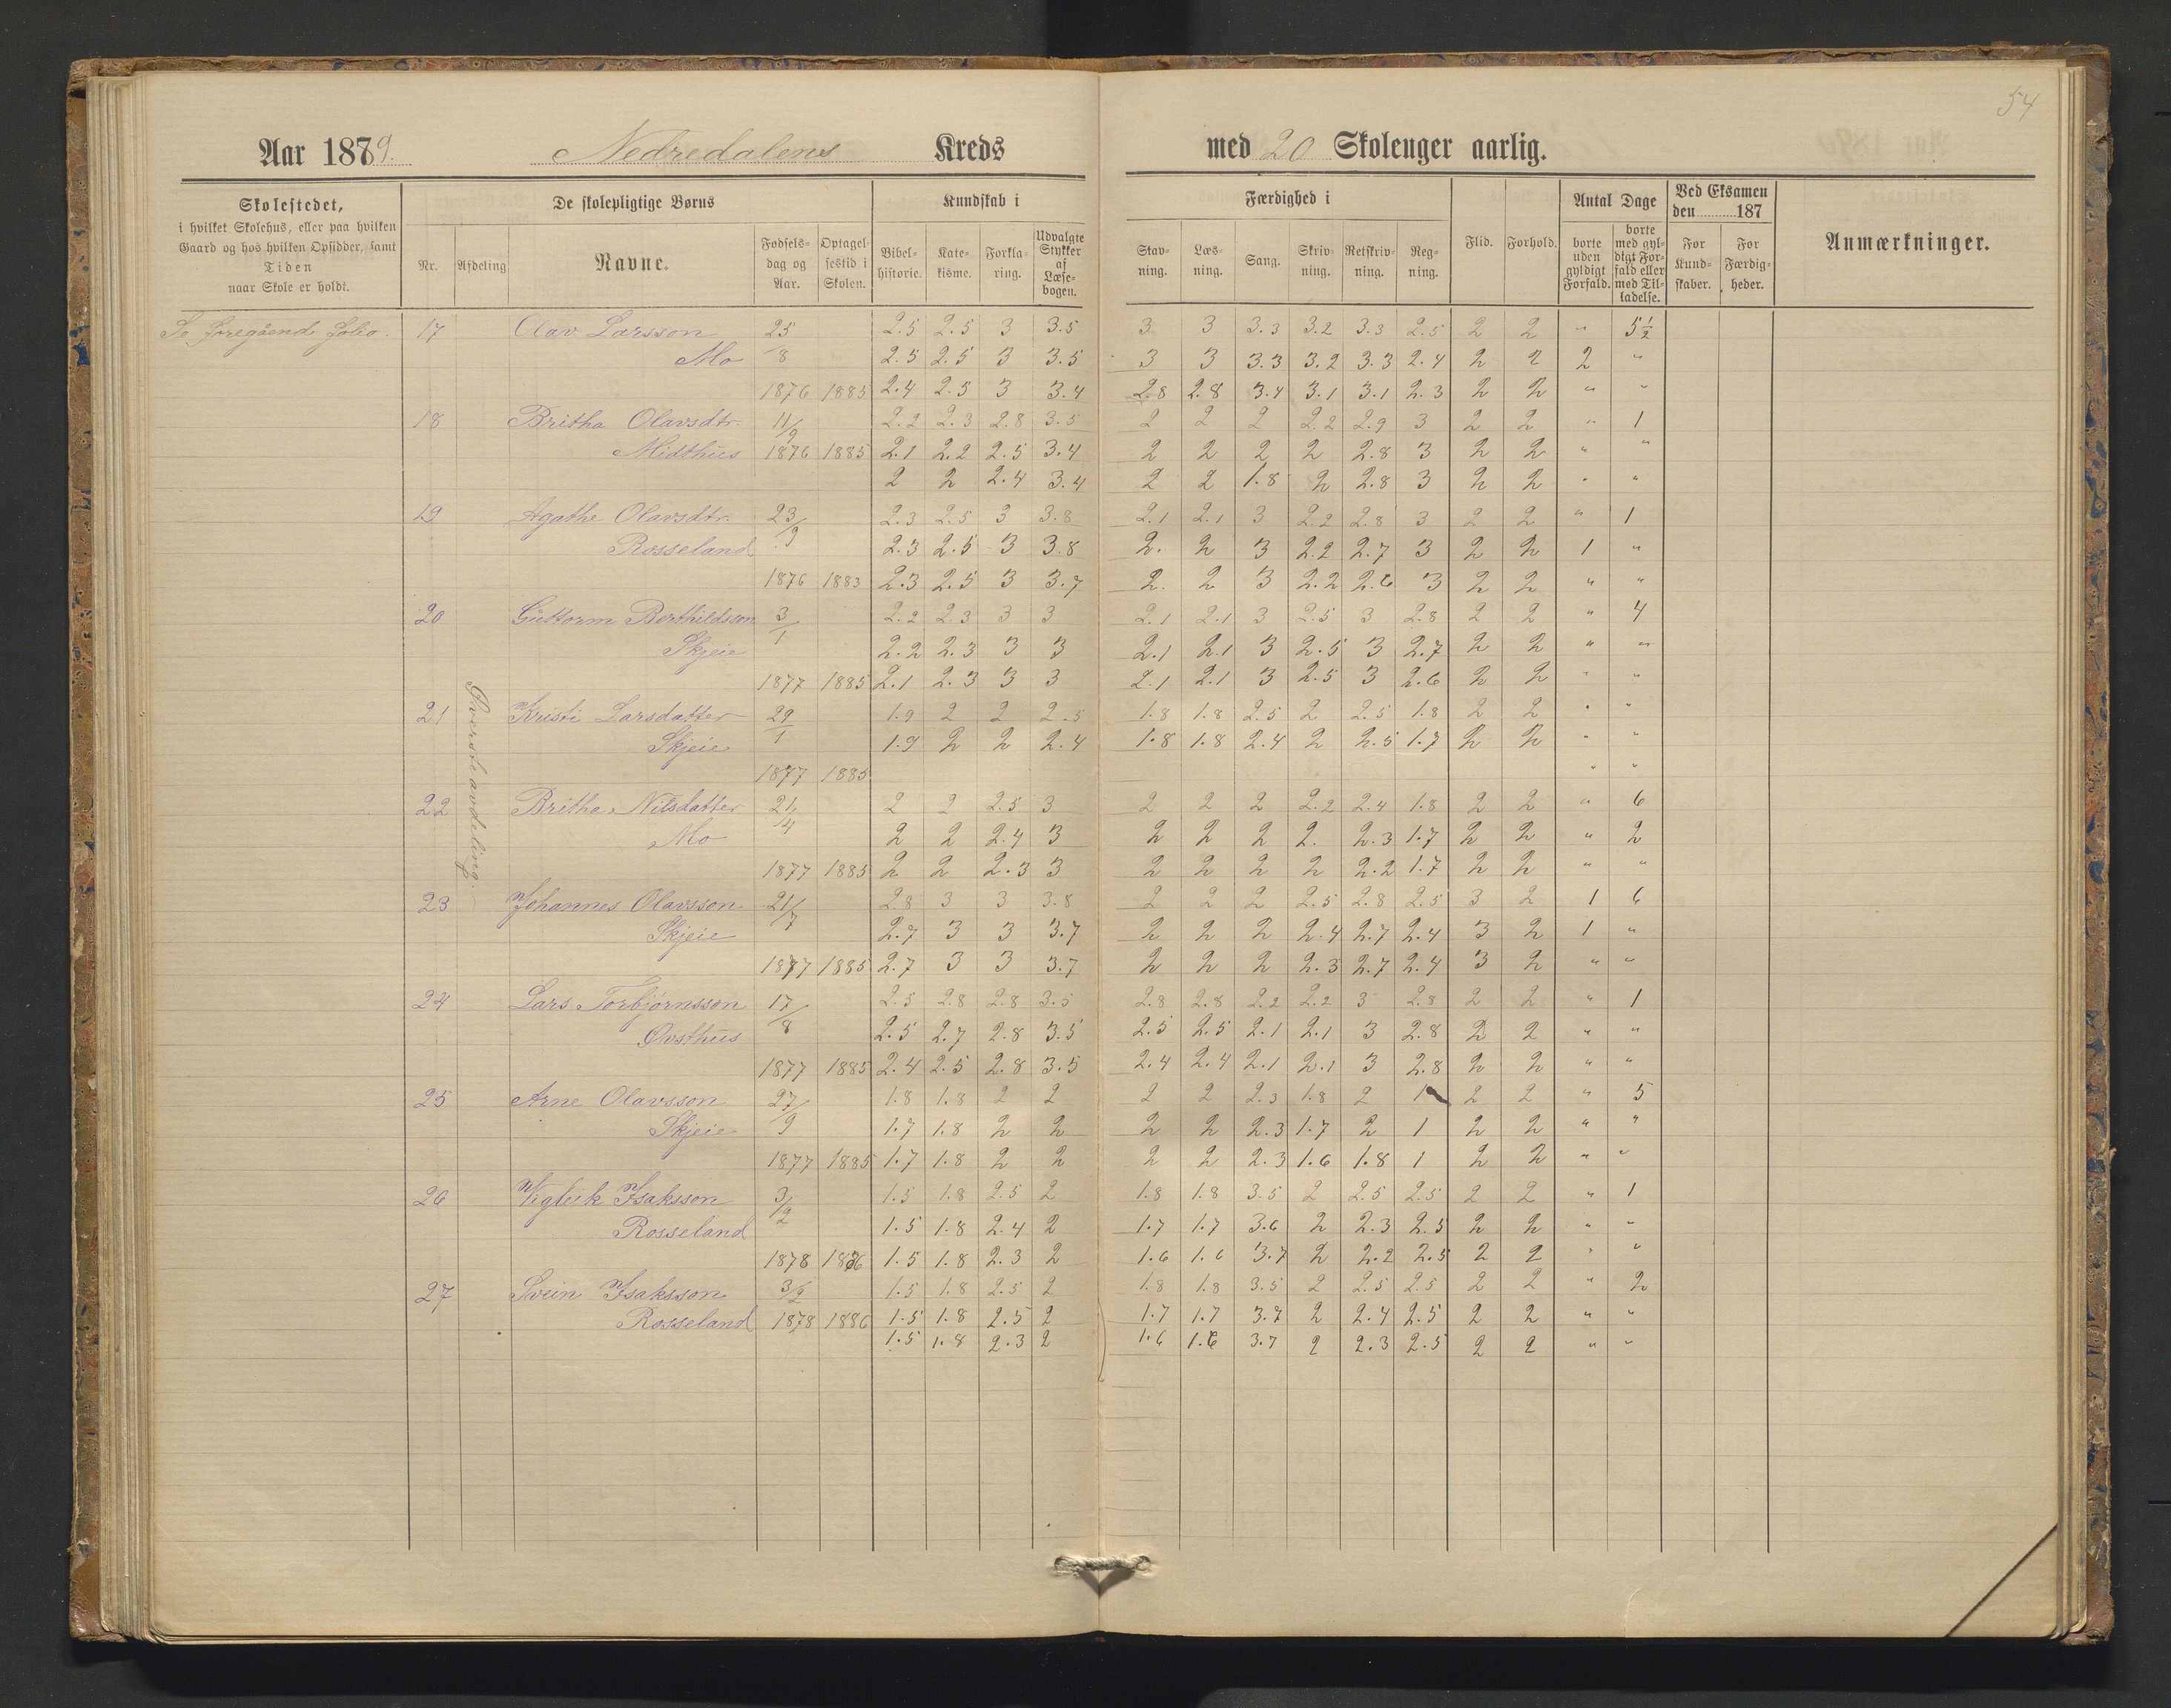 54
Aar 1879. Nedredalens Kreds med 20 Skoleuger aarlig.
Skolestedet, i hvilket Skolehus, eller paa hvilken Gaard og hos hvilken Opsidder, samt Tiden naar Skole er holdt.
De skolepligtige Børns
Nr. Afdeling Navne. Fødselsdag og Aar. Optagelsestid i Skolen.
Kundskab i
Bibelhistorie. Katekisme. Forklaring. Udvalgte Stykker af Læsebogen.
Færdighed i
Stavning. Læsning. Sang. Skrivning. Retskrivning. Regning.
Flid. Forhold.
Antal Dage
borte uden gyldigt Forfald. borte med gyldigt Forfald eller med Tilladelse.
Ved Eksamen den 187
For Kundskaber. For Færdigheder.
Anmærkninger.
Se foregående folio. 17 Olav Larsson 25 2.5 2.5 3 3.5 3 3 3.3 3.2 3.3 2.5 2 2 " 5½
Mo 8 2.5 2.5 3 3.5 3 3 3.3 3.2 3.3 2.4 2 2 2 "
1876 1885 2.4 2.5 3 3.4 2.8 2.8 3.4 3.1 3.1 2.3 2 2 " "
18 Britha Olavsdtr. 11/9 2.2 2.3 2.8 3.5 2 2 2 2.2 2.9 3 2 2 " 1
Midthus 1876 1885 2.1 2.2 2.5 3.4 2 2 2 2 2.8 3 2 2 " "
2 2 2.4 3.4 2 2 1.8 2 2.8 3 2 2 " "
19 Agathe Olavsdtr. 23/9 2.3 2.5 3 3.8 2.1 2.1 3 2.2 2.8 3 2 2 " 1
Rosseland 2.3 2.5 3 3.8 2. 2 3 2.2 2.7 3 2 2 1 "
1876 1883 2.3 2.5 3 3.7 2. 2 3 2.2 2.6 3 2 2 " "
20 Guttorm Berthildsson 3 2.2 2.3 3 3 2.1 2.1 3 2.5 3 2.8 2 2 " 4
Skjeie 1 2.2 2.3 3 3 2.1 2.1 3 2.5 3 2.7 2 2 " "
1877 1885 2.1 2.3 3 3 2.1 2.1 3 2.5 3 2.6 2 2 " "
Øverste avdeling.
21 Kristi Larsdatter 29 1.9 2 2 2.5 1.8 1.8 2.5 2 2.5 1.8 2 2 " "
Skjeie 1 1.9 2 2 2.4 1.8 1.8 2.4 2 2.5 1.7 2 2 " "
1877 1885 " "
22 Britha Nilsdatter 21/4 2 2 2.5 3 2 2 2 2.2 2.4 1.8 2 2 " 6
Mo 2 2 2.4 3 2 2 2 2. 2.3 1.7 2 2 " 2
1877 1885 2 2 2.3 3 2 2 2 2 2.2 1.7 2 2 " "
23 Johannes Olavsson 21/7 2.8 3 3 3.8 2 2 2 2.5 2.8 2.5 3 2 1 6
Skjeie 2.7 3 3 3.7 2 2 2 2.4 2.7 2.4 3 2 1 "
1877 1885 2.7 3 3 3.7 2 2 2 2.3 2.7 2.4 3 2 " "
24 Lars Torbjørnsson 17/8 2.5 2.8 2.8 3.5 2.8 2.8 2.2 2.2 3 2.8 2 2 " 1
Øvsthus 2.5 2.7 2.8 3.5 2.5 2.5 2.1 2.1 3 2.8 2 2 " "
1877 1885 2.4 2.5 2.8 3.5 2.4 2.4 2.1 2.1 3 2.8 2 2 " "
25 Arne Olavsson 27/9 1.8 1.8 2 2 2 2 2.3 1.8 2 1 2 2 " 5
Skjeie 1.7 1.8 2 2 2 2 2.3 1.7 2 1 2 2 " "
1877 1885 1.7 1.8 2 2 2 2 2.3 1.6 1.8 1 2 2 " "
26 Vigleik Isaksson 3/2 1.5 1.8 2.5 2 1.8 1.8 3.5 2 2.5 2.5 2 2 " 1
Rosseland 1.5 1.8 2.4 2 1.7 1.7 3.6 2 2.3 2.5 2 2 " "
1878 1886 1.5 1.8 2.3 2 1.6 1.6 3.7 2 2.2 2.5 2 2 " "
27 Svein Isaksson 3/2 1.5 1.8 2.5 2 1.8 1.8 3.5 2 2.5 2.5 2 2 " 2
Rosseland 1878 1886 1.5 1.8 2.5 2 1.7 1.7 3.7 2 2.4 2.5 2 2 " "
1.5 1.8 2.3 2 1.6 1.6 3.7 2 2.3 2.5 2 2 " "